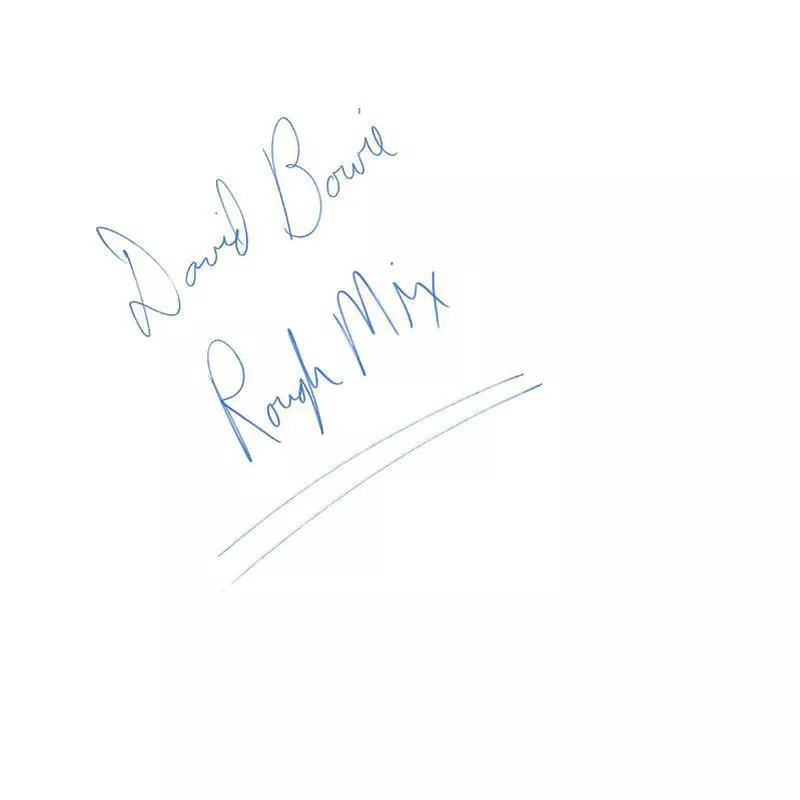 David Bowie
Rough Mix